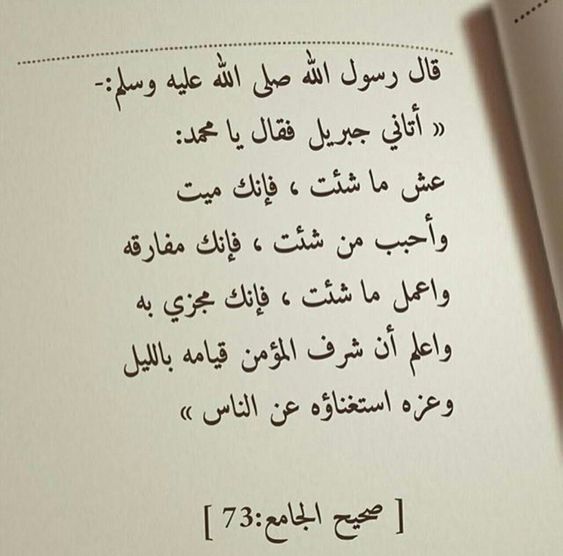 قال رسول الله صلى الله عليه وسلم:-
« أتاني جبريل فقال يا محمد:
عش ما شئت ، فإنك ميت
وأحبب من شئت ، فإنك مفارقه
واعمل ما شئت ، فإنك مجزي به
واعلم أن شرف المؤمن قيامه بالليل
وعزه استغناؤه عن الناس »
[ صحيح الجامع:73 ]